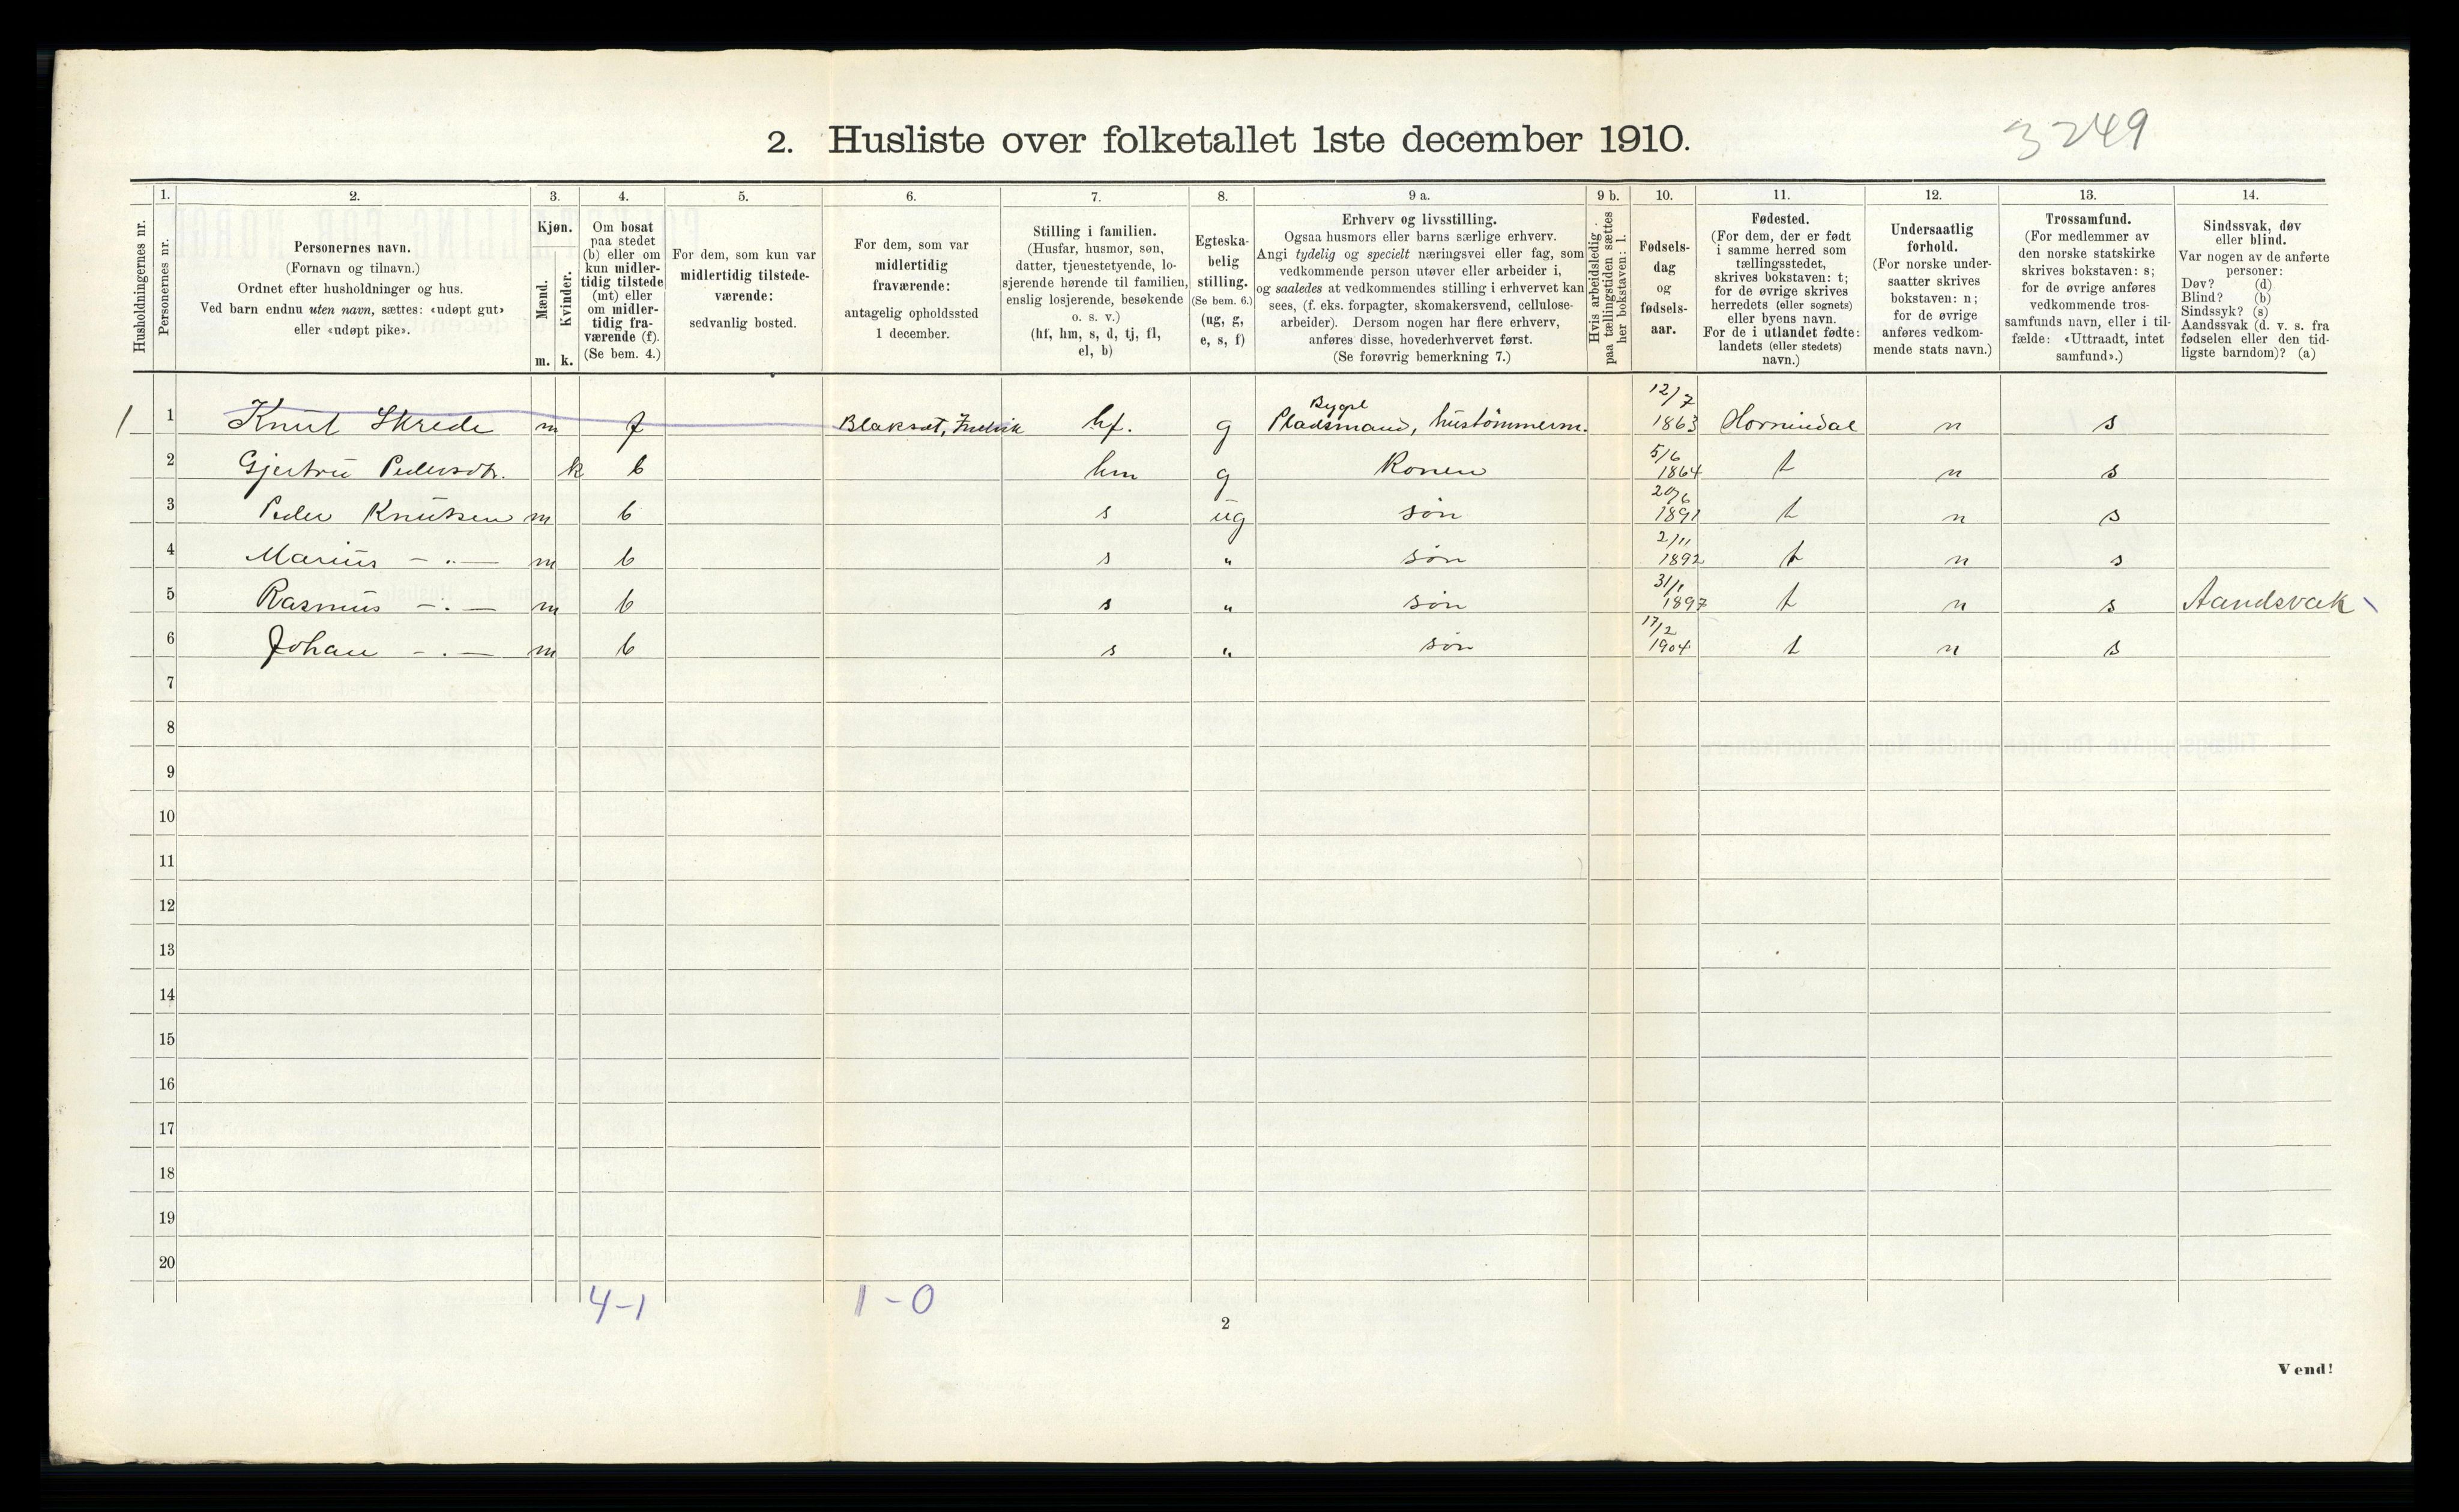 3249
2. Husliste over folketallet 1ste december 1910.
Husholdningernes nr.
1.
Personernes nr.
2.
Personernes navn.
(Fornavn og tilnavn.)
Ordnet efter husholdninger og hus.
Ved barn endnu uten navn, sættes: «udøpt gut»
eller «udøpt pike».
3.
Kjøn.
Mænd.
Kvinder.
m. k.
4.
Om bosat
paa stedet
(b) eller om
kun midler-
tidig tilstede
(mt) eller
om midler-
tidig fra-
værende (f).
(Se bem. 4.)
5.
For dem, som kun var
midlertidig tilstede-
værende:
sedvanlig bosted.
6.
For dem, som var
midlertidig
fraværende:
antagelig opholdssted
1 december.
7.
Stilling i familien.
(Husfar, husmor, søn,
datter, tjenestetyende, lo-
sjerende hørende til familien,
enslig losjerende, besøkende
o. s. v.)
(hf, hm, s, d, tj, fl,
el, b)
8.
Egteska-
belig
stilling.
(Se bem. 6.)
(ug, g,
e, s, f)
9 a.
Erhverv og livsstilling.
Ogsaa husmors eller barns særlige erhverv.
Angi tydelig og specielt næringsvei eller fag, som
vedkommende person utøver eller arbeider i,
og saaledes at vedkommendes stilling i erhvervet kan
sees, (f. eks. forpagter, skomakersvend, cellulose-
arbeider). Dersom nogen har flere erhverv,
anføres disse, hovederhvervet først.
(Se forøvrig bemerkning 7.)
9 b.
Hvis arbeidsledig
paa tællingstiden sættes
her bokstaven: l.
10.
Fødsels-
dag
og
fødsels-
aar.
11.
Fødested.
(For dem, der er født
i samme herred som
tællingsstedet,
skrives bokstaven: t;
for de øvrige skrives
herredets (eller sognets)
eller byens navn.
For de i utlandet fødte:
landets (eller stedets)
navn.)
12.
Undersaatlig
forhold.
(For norske under-
saatter skrives
bokstaven: n;
for de øvrige
anføres vedkom-
mende stats navn.)
13.
Trossamfund.
(For medlemmer av
den norske statskirke
skrives bokstaven: s;
for de øvrige anføres
vedkommende tros-
samfunds navn, eller i til-
fælde: «Uttraadt, intet
samfund».)
14.
Sindssvak, døv
eller blind.
Var nogen av de anførte
personer:
Døv? (d)
Blind? (b)
Sindssyk? (s)
Aandssvak (d. v. s. fra
fødselen eller den tid-
ligste barndom)? (a)
1 1 Knut Skrede m f Blaksæt, hf. g Bygsl Pladsmand, hustømmerm. 12/7 1863 Hornindal n s
2 Gjertru Pedersdtr. k b hm g Konen 5/6 1864 t n s
3 Peder Knutsen m b s ug søn 20/6 1891 t n s
4 Marius - " - m b s " søn 2/11 1892 t n s
5 Rasmus - " - m b s " søn 31/1 1897 t n s Aandsvak
6 Johan - " - m b s " søn 17/2 1904 t n s
7
8
9
10
11
12
13
14
15
16
17
18
19
20
4-1 1-0
2
Vend!